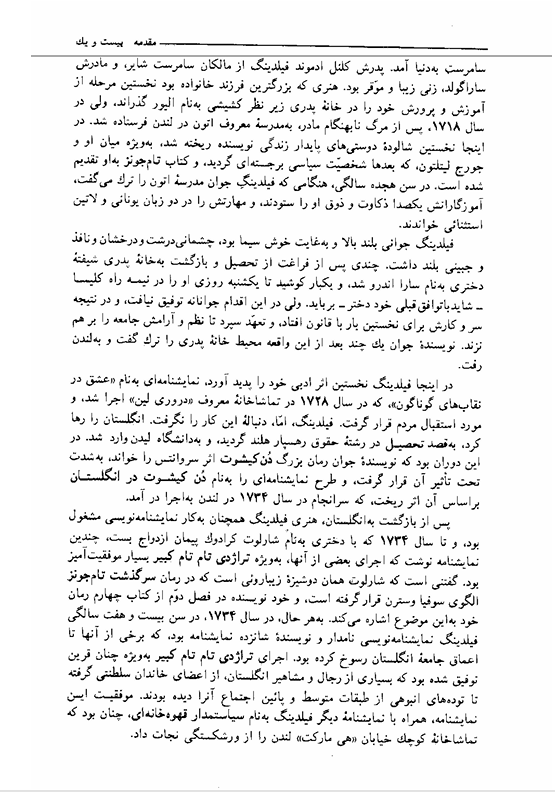 مقدمه بیست و یک
سامرست به‌دنیا آمد. پدرش کلنل ادموند فیلدینگ از مالکان سامرست شایر، و مادرش
ساراگولد، زنی زیبا و موّقر بود. هنری که بزرگترین فرزند خانواده بود نخستین مرحله از
آموزش و پرورش خود را در خانهٔ پدری زیر نظر کشیشی به‌نام الیور گذراند، ولی در
سال ۱۷۱۸، پس از مرگ نابهنگام مادر، به‌مدرسهٔ معروف اتون در لندن فرستاده شد. در
اینجا نخستین شالودهٔ دوستی‌های پایدار زندگی نویسنده ریخته شد، به‌ویژه میان او و
جورج لیتلتون، که بعدها شخصیّت سیاسی برجسته‌ای گردید، و کتاب تام‌جونز به‌او تقدیم
شده است. در سن هجده سالگی، هنگامی که فیلدینگِ جوان مدرسهٔ اتون را ترك می‌گفت،
آموزگارانش یکصدا ذکاوت و ذوق او را ستودند، و مهارتش را در دو زبان یونانی و لاتین
استثنائی خواندند.
فیلدینگ جوانی بلند بالا و به‌غایت خوش سیما بود، چشمانی‌درشت و درخشان و نافذ
و جبینی بلند داشت. چندی پس از فراغت از تحصیل و بازگشت به‌خانهٔ پدری شیفتهٔ
دختری به‌نام سارا اندرو شد، و یکبار کوشید تا یکشنبه روزی او را در نیمه راه کلیسا
ـ شایدباتوافق‌قبلی خود دختر ـ برباید. ولی در این اقدام جوانانه توفیق نیافت، و در نتیجه
سر و کارش برای نخستین بار با قانون افتاد، و تعهّد سپرد تا نظم و آرامش جامعه را بر هم
نزند. نویسندهٔ جوان یك چند بعد از این واقعه محیط خانهٔ پدری را ترك گفت و به‌لندن
رفت.
در اینجا فیلدینگ نخستین اثر ادبی خود را پدید آورد، نمایشنامه‌ای به‌نام «عشق در
نقاب‌های گوناگون»، که در سال ۱۷۲۸ در تماشاخانهٔ معروف «دروری لین» اجرا شد، و
مورد استقبال مردم قرار گرفت. فیلدینگ، امّا، دنبالهٔ این کار را نگرفت. انگلستان را رها
کرد، به‌قصد تحصیل در رشتهٔ حقوق رهسپار هلند گردید، و به‌دانشگاه لیدن وارد شد. در
این دوران بود که نویسندهٔ جوان رمان بزرگ دُن‌کیشوت اثر سروانتس را خواند، به‌شدت
تحت تأثیر آن قرار گرفت، و طرح نمایشنامه‌ای را به‌نام دُن کیشوت در انگلستان
براساس آن اثر ریخت، که سرانجام در سال ۱۷۳۴ در لندن به‌اجرا در آمد.
پس از بازگشت به‌انگلستان، هنری فیلدینگ همچنان به‌کار نمایشنامه‌نویسی مشغول
بود، و تا سال ۱۷۳۴ که با دختری به‌نام شارلوت کرادوك پیمان ازدواج بست، چندین
نمایشنامه نوشت که اجرای بعضی از آنها، به‌ویژه تراژدی تام تام کبیر بسیار موفقیت‌آمیز
بود. گفتنی است که شارلوت همان دوشیزهٔ زیبارونی است که در رمان سرگذشت تام‌جونز
الگوی سوفیا وسترن قرارگرفته است، و خود نویسنده در فصل دوّم از کتاب چهارم رمان
خود به‌این موضوع اشاره می‌کند. به‌هر حال، در سال ۱۷۳۴، در سن بیست و هفت سالگی
فیلدینگ نمایشنامه‌نویسی نامدار و نویسندهٔ شانزده نمایشنامه بود، که برخی از آنها تا
اعماق جامعهٔ انگلستان رسوخ کرده بود. اجرای تراژدی تام تام کبیر به‌ویژه چنان قرین
توفیق شده بود که بسیاری از رجال و مشاهیر انگلستان، از اعضای خاندان سلطنتی گرفته
تا توده‌های انبوهی از طبقات متوسط و پائین اجتماع آنرا دیده بودند. موفقیت ایـن
نمایشنامه، همراه با نمایشنامهٔ دیگر فیلدینگ به‌نام سیاستمدار قهوه‌خانه‌ای، چنان بود که
تماشاخانهٔ کوچك خیابان «هی مارکت» لندن را از ورشکستگی نجات داد.